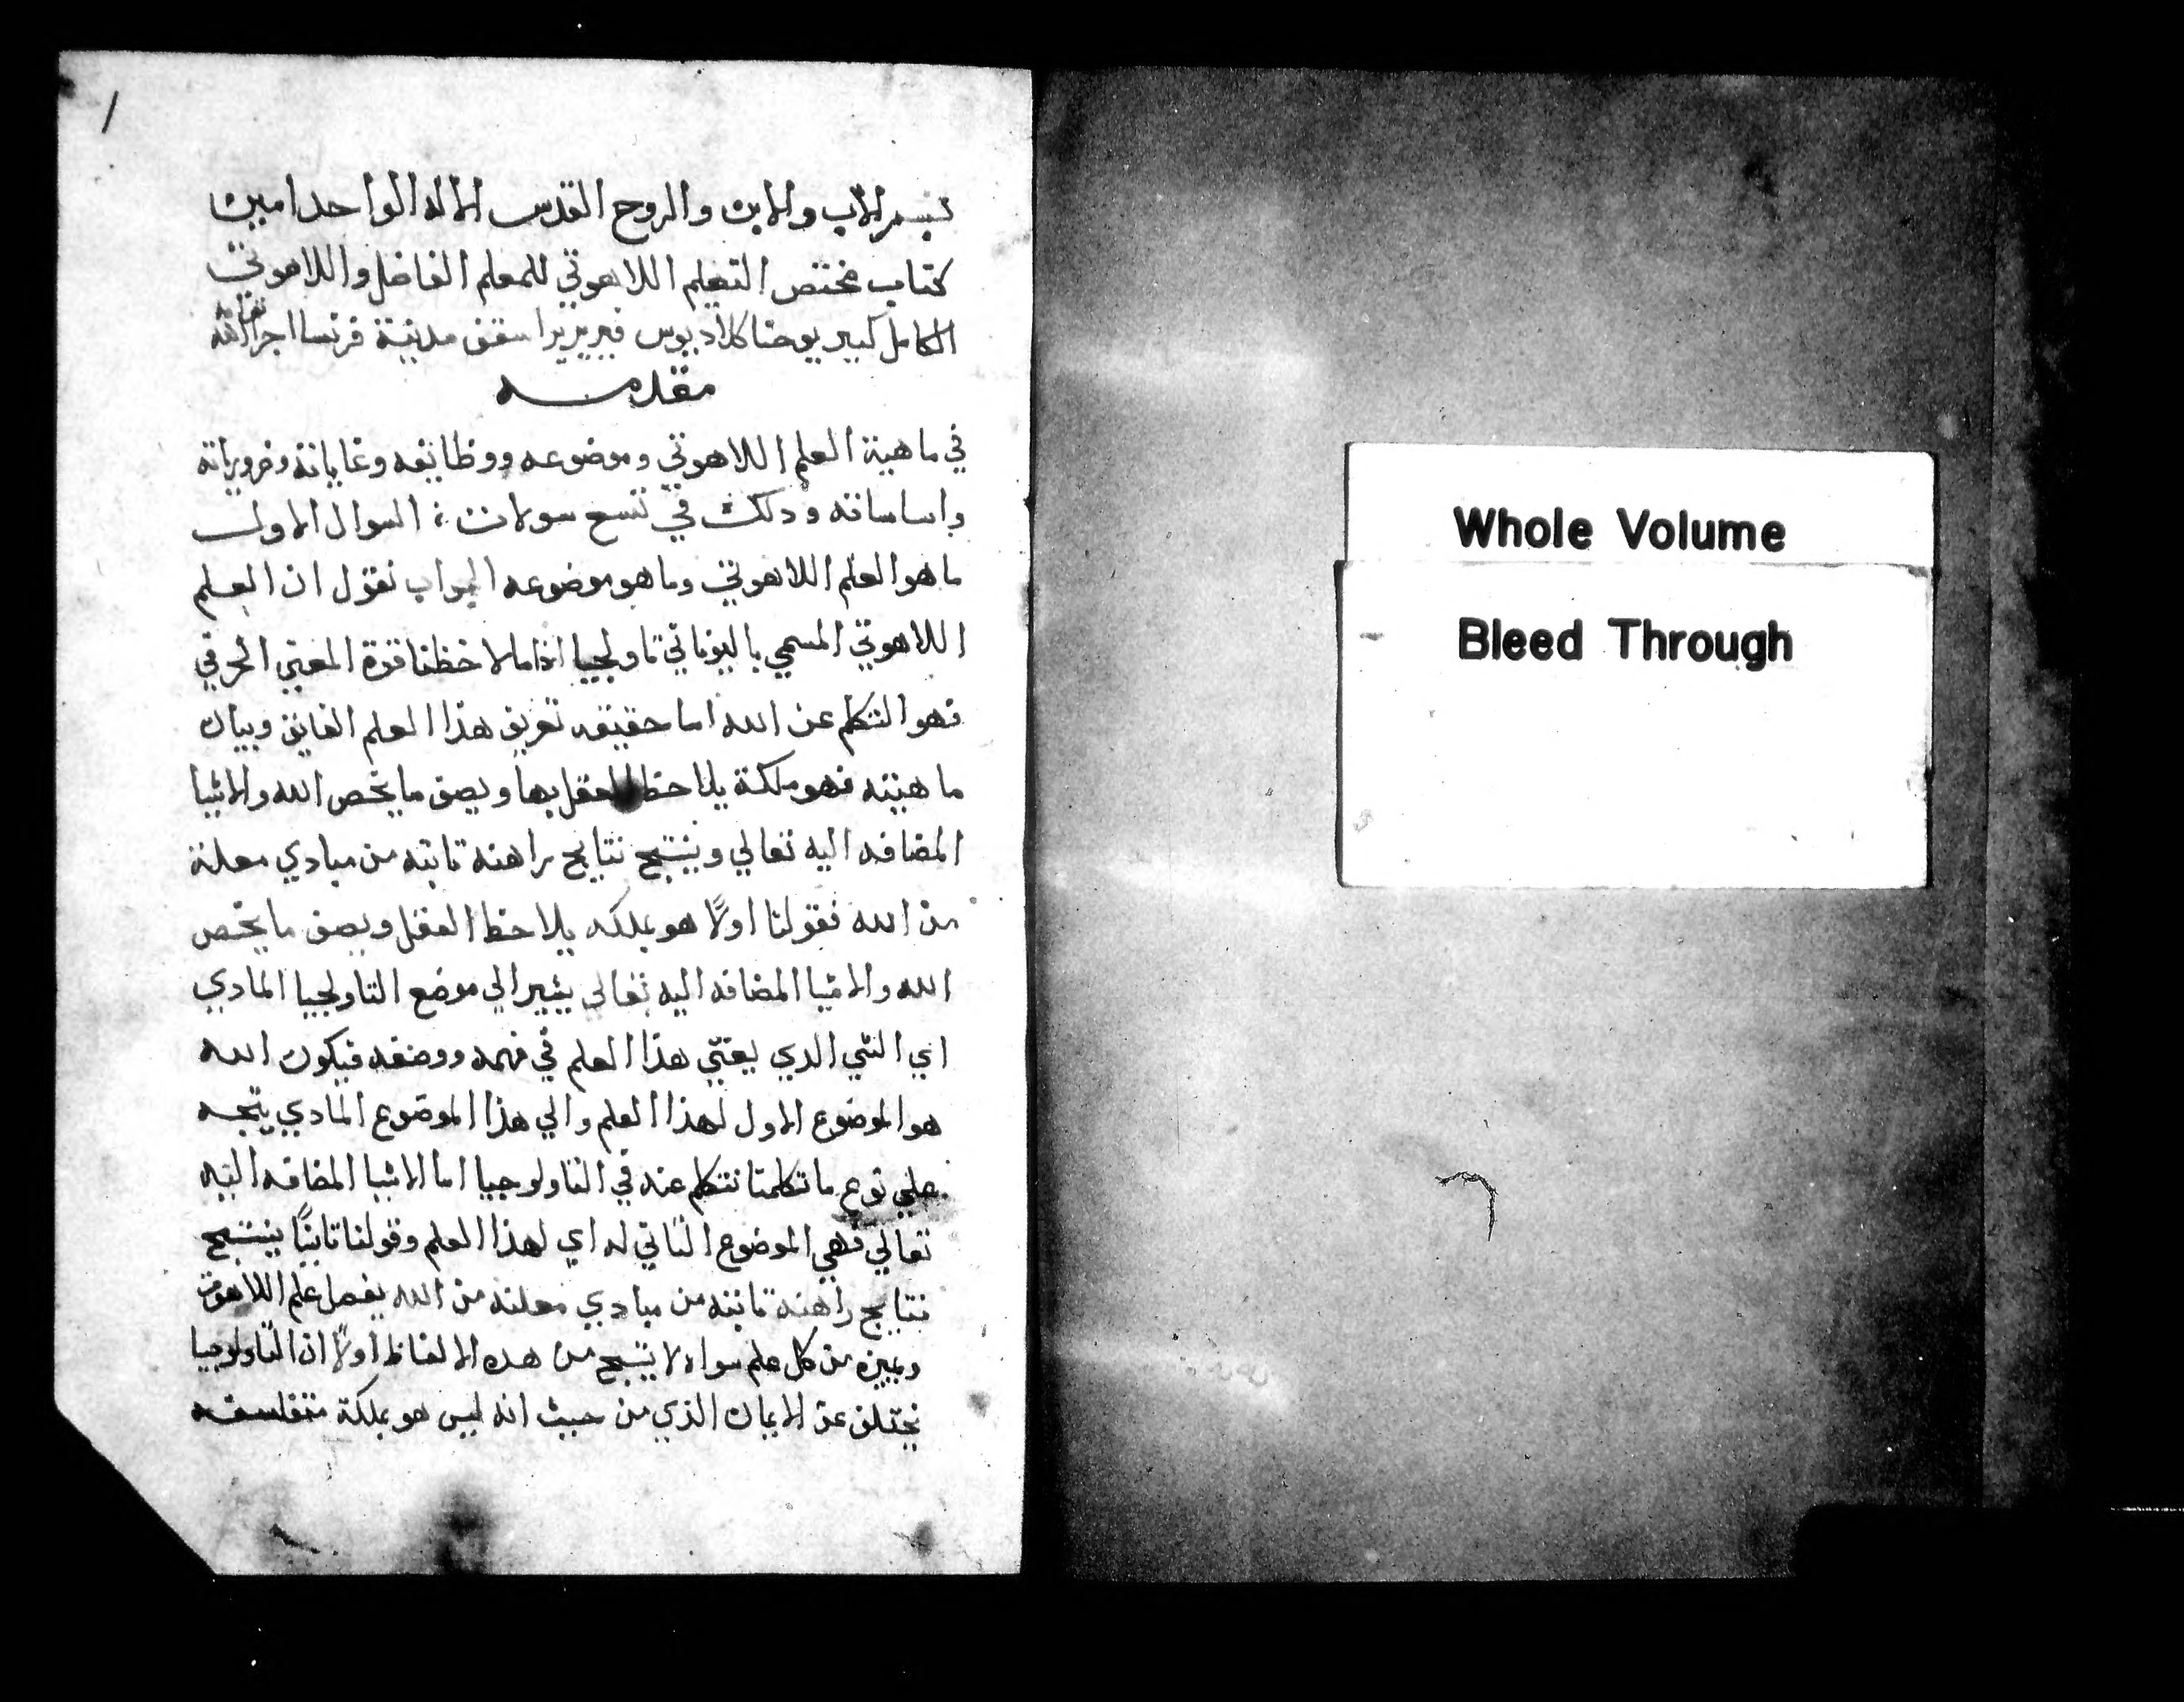 بسم الاب والابن والروح القدس الاله الواحد امين
كتاب مختص التعليم اللاهوتي للمعلم الفاضل واللاهوتي
الكامل كبير يوحنا كلاديوس فيريرير اسقف مدينة فرنسا اجزا الله
مقدمه
في ماهية العلم اللاهوتي وموضوعه ووظايفه وغاياته وضروريانه
واساساته ودلك في تسع سولات : السوال الاول
ما هو العلم اللاهوتي وما هو موضوعه الجواب نقول ان العلم
اللاهوتي المسمي باليوناني تاولجيا اذا ما لاحظنا قوة المعني الحرفي
فهو التكلم عن الله اما حقيقه تعريف هذا العلم الفايق وبيان
ماهيته فهو ملكة يلاحظ العقل بها ويصف ما يخص الله والاشيا
المضافه اليه تعالي وينتج نتايج راهنه تابته من مبادي معلنة
من الله فقولنا اولاً هو بملكه يلاحظ العقل ويصف ما يخص
الله والاشيا المضافه اليه تعالي يشير الي موضع التاولجيا المادي
اي الشي الدي يعتني هذا العلم في فهمه ووصفه فيكون الله
هو الموضوع الاول لهذا العلم والي هذا الموضوع المادي يتجه
علي نوع ما تكلمنا نتكلم عنه في التاولوجيا اما الاشيا المضافه اليه
تعالي فهي الموضوع التاني له اي لهذا العلم وقولنا تانيًا ينتج
نتايج راهنه تابته من مبادي معلنه من الله يفصل علم اللاهوت
ويميزه من كل علم سواه لا ينتج من هده الالفاظ اولاً ان التاولوجيا
تختلف عن الايمان الذي من حيث انه ليس هو بملكة متفلسفه
/
Whole Volume
Bleed Through